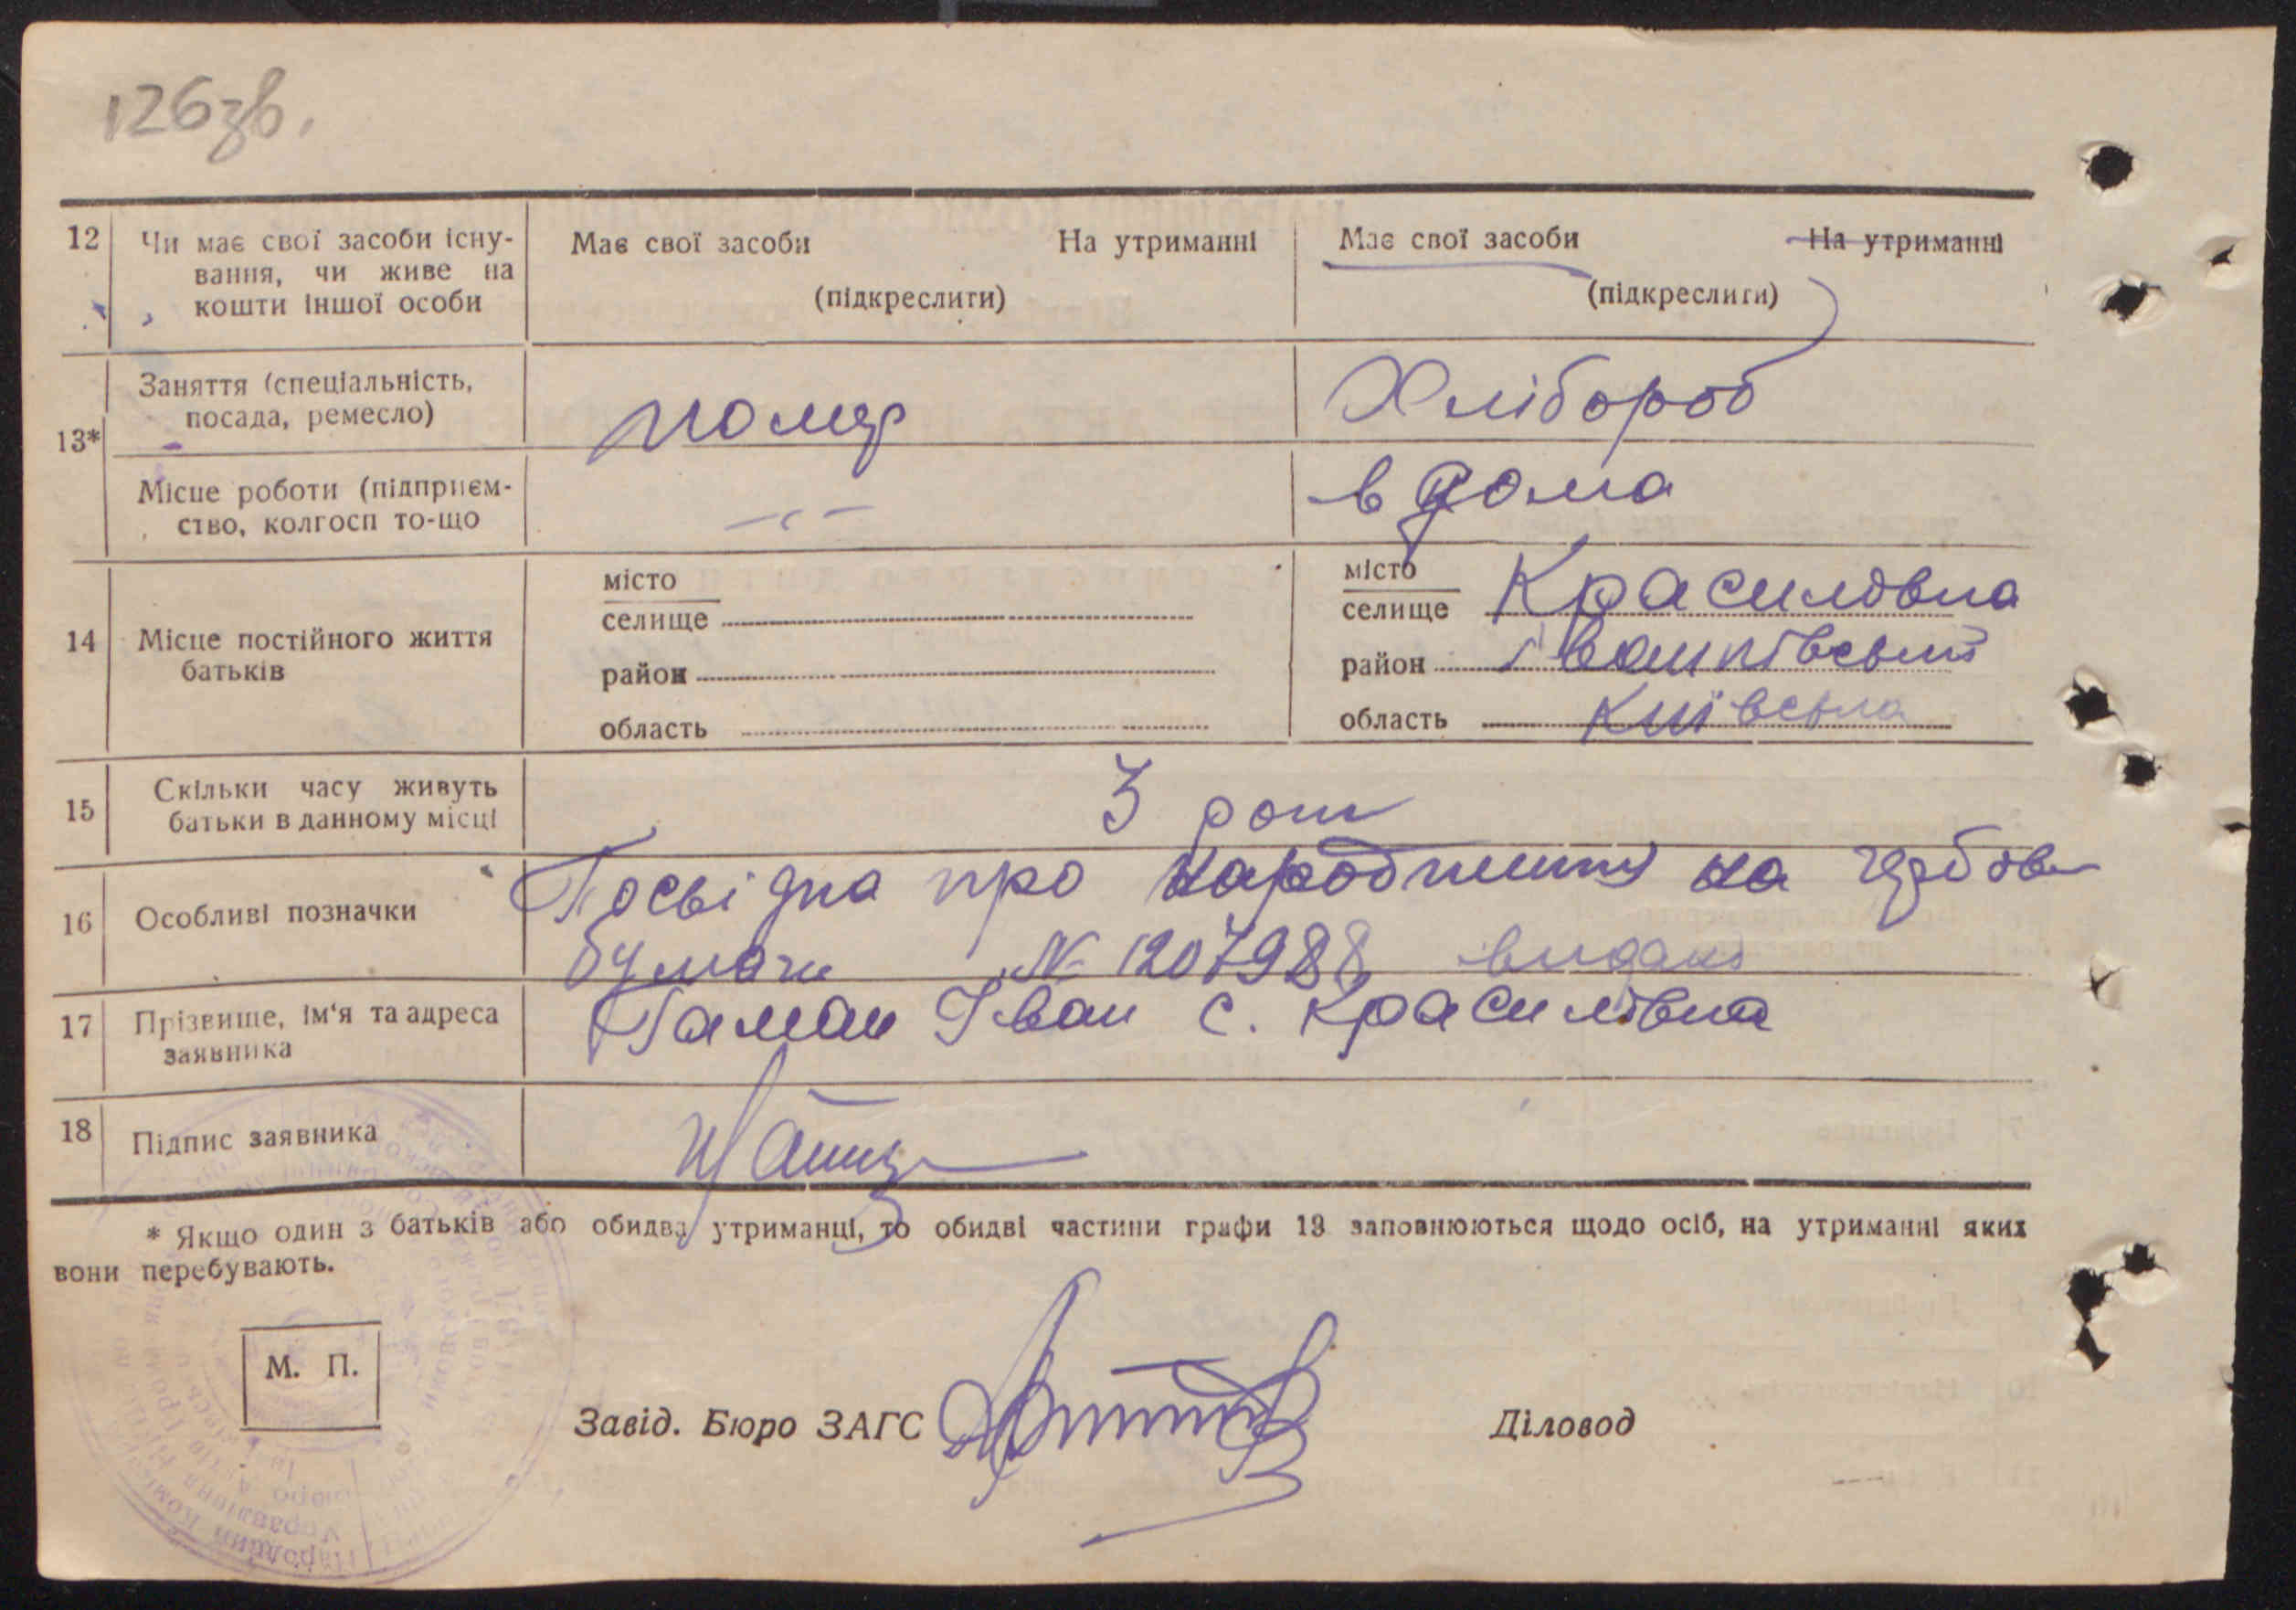 126зв.
12 Чи має свої засоби існу-
вання, чи живе на
кошти іншої особи
Має свої засоби На утриманні
(підкреслити)
Має свої засоби На утриманні
(підкреслити)
13*
Заняття (спеціальність,
посада, ремесло)
помер
Хлібороб
Місце роботи (підприєм-
ство, колгосп то-що
вдома
14 Місце постійного життя
батьків
місто
селище
район
область
місто
селище Красилівка
район Іванківський
область Київська
15 Скільки часу живуть
батьки в данному місці
3 роки
16 Особливі позначки
Посвідка про народження на гербов
бумаги № 1207988 видана
17 Прізвище, ім'я та адреса
заявника
Гаман Іван с. Красилівка
18 Підпис заявника
* Якщо один з батьків або обидва утриманці, то обидві частини графи 13 заповнюються щодо осіб, на утриманні яких
вони перебувають.
М. П.
Завід. Бюро ЗАГС
Діловод